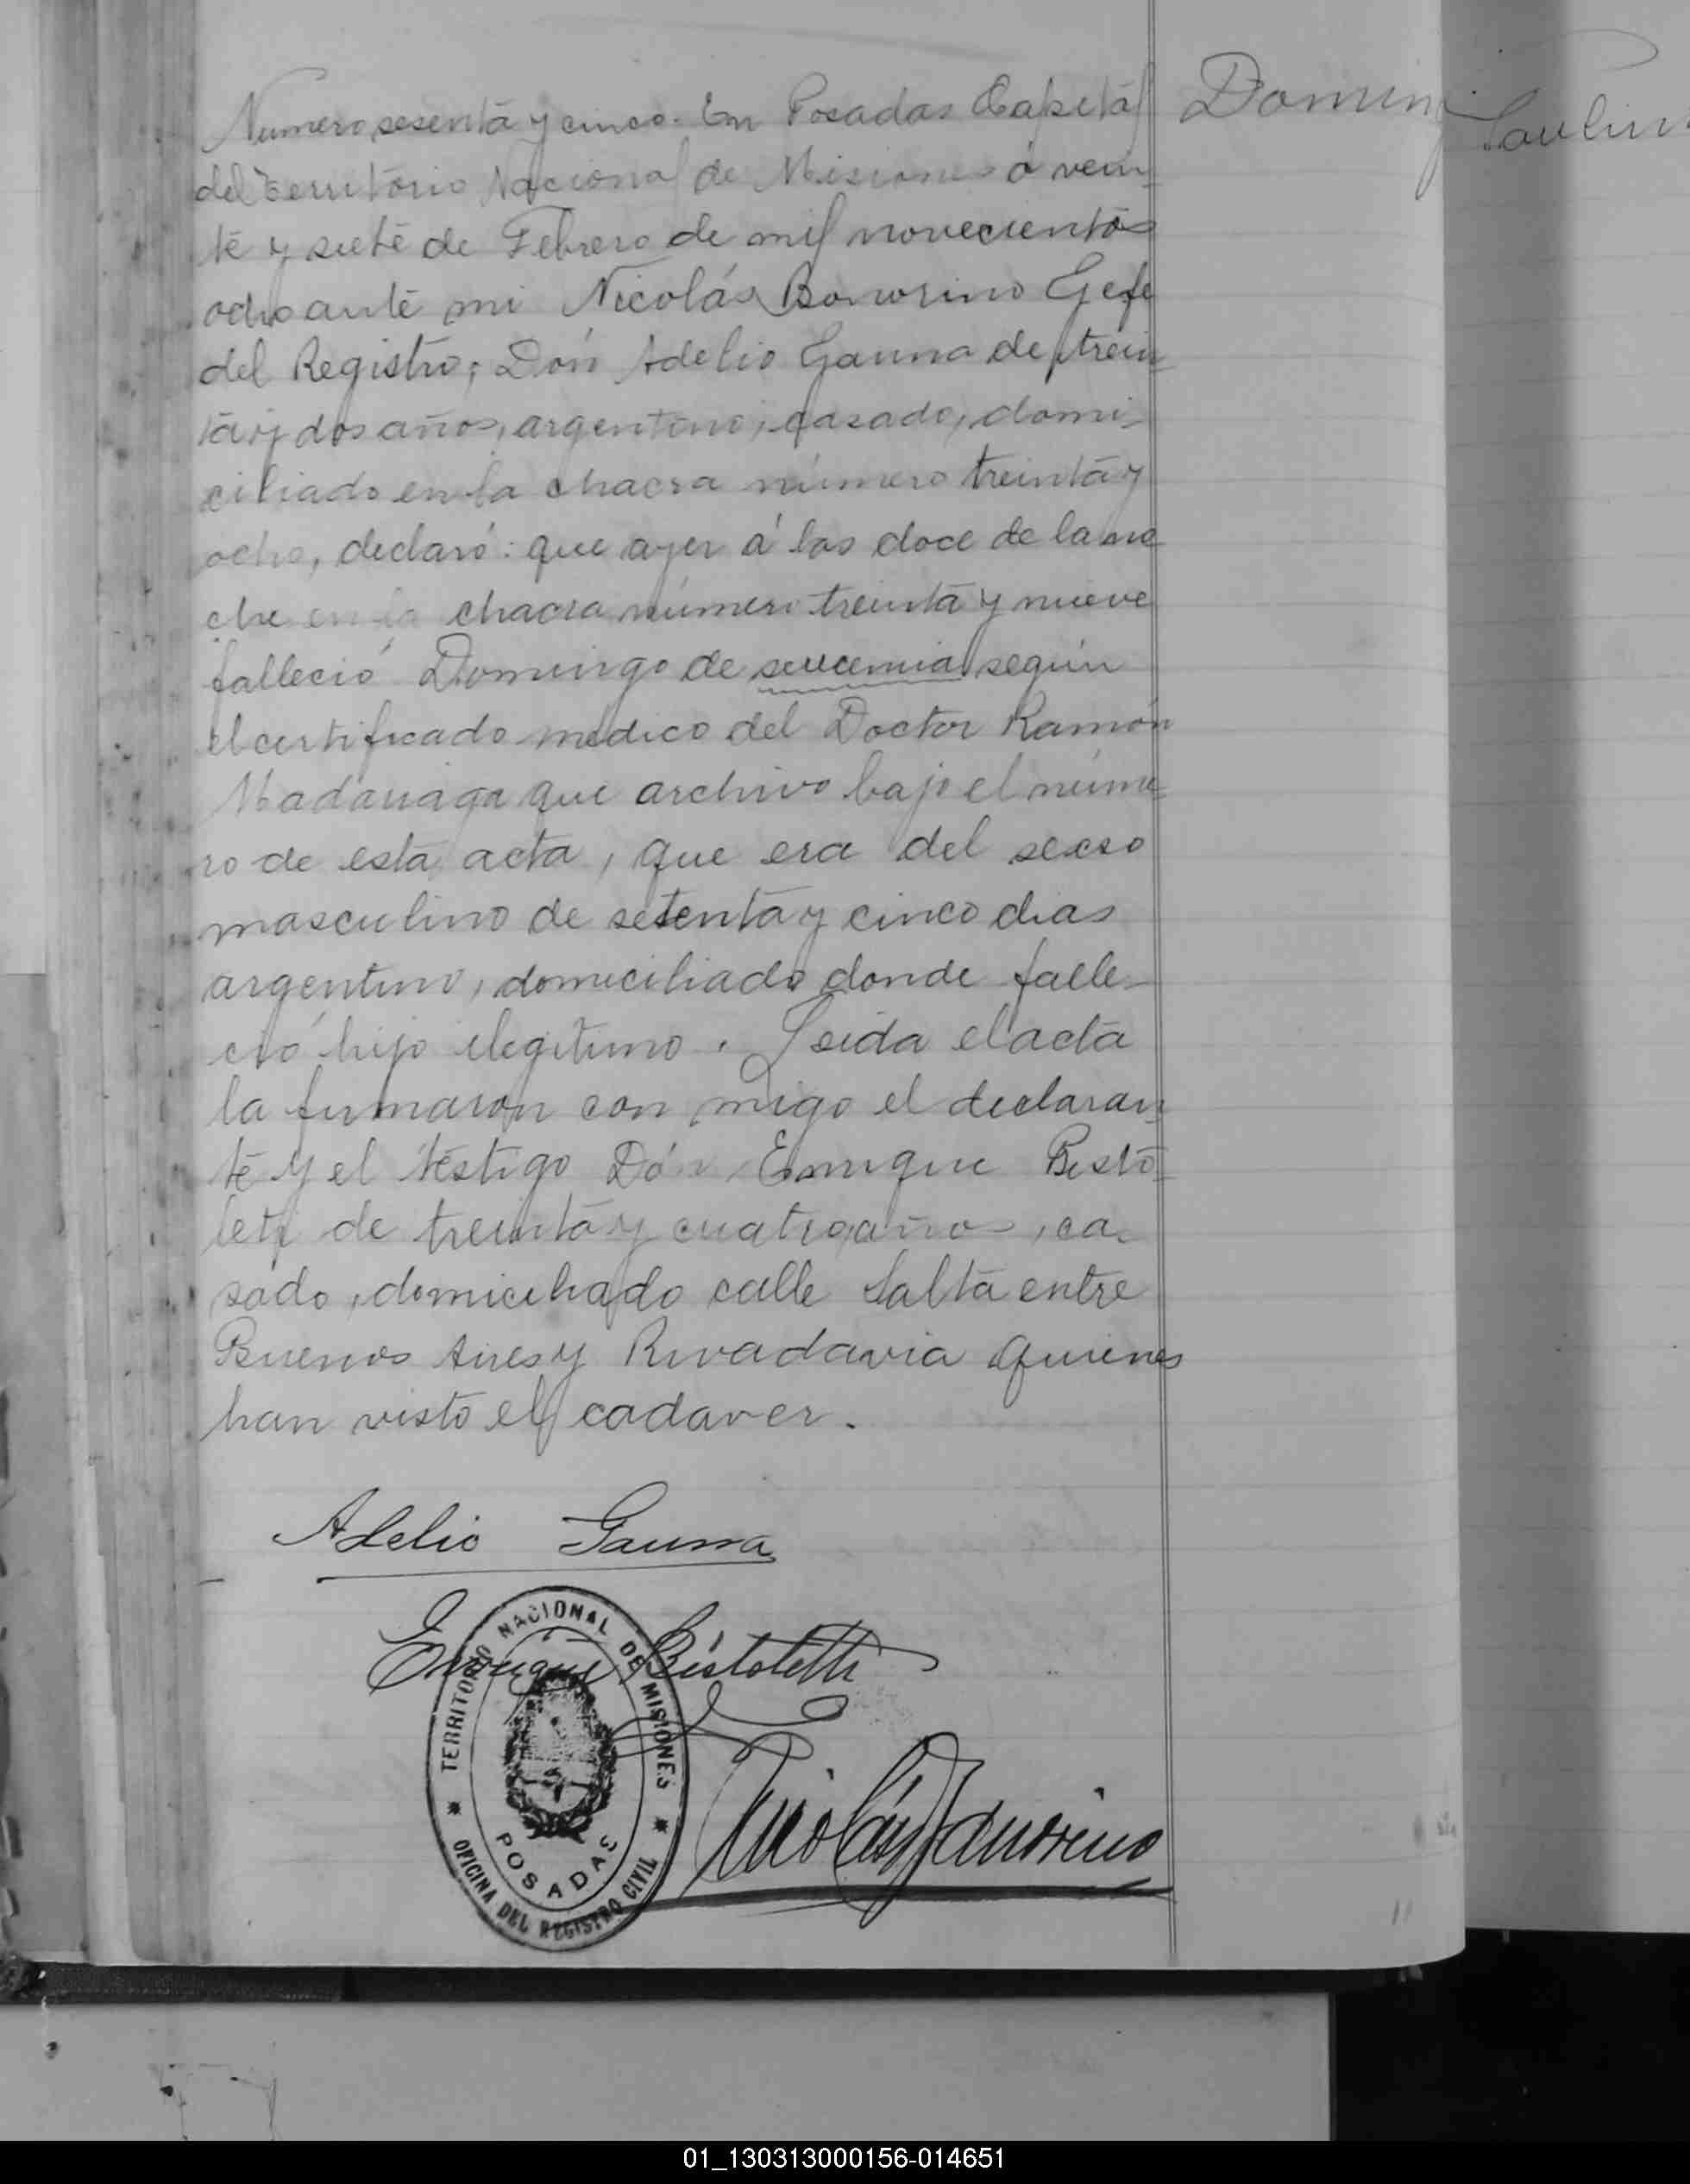 Numero sesenta y cinco. En Posadas Capital
del Territorio Nacional de Misiones á vein-
te y siete de Febrero de mil novecientos
ocho ante mi Nicolás Bonorino Gefe
del Registro; Dón Adelio Gauna de trein-
ta y dos años, argentino, casado, domi-
ciliado en la chacra número treinta y
ocho, declaró: que ayer á las doce de la no
che en la chacra número treinta y nueve
falleció Domingo de según
el certificado médico del Doctor Ramón
Madariaga que archivo bajo el núme-
ro de esta acta, que era del sexso
masculino de setenta y cinco dias
argentino, domiciliado donde falle-
ció hijo ilegitimo. Leida el acta
la firmaron con migo el declaran-
te y el testigo Dón Enrique Bisto-
leti de treinta y cuatro años, ca-
sado, domiciliado calle Salta entre
Buenos Aires y Rivadavia quienes
han visto el cadaver.
Adelio Gauna
Enrique Bistoletti
Nicolás Bonorino
TERRITORIO NACIONAL DE MISIONES
POSADAS
OFICINA DEL REGISTRO CIVIL
Doming
Paulin
01_130313000156-014651